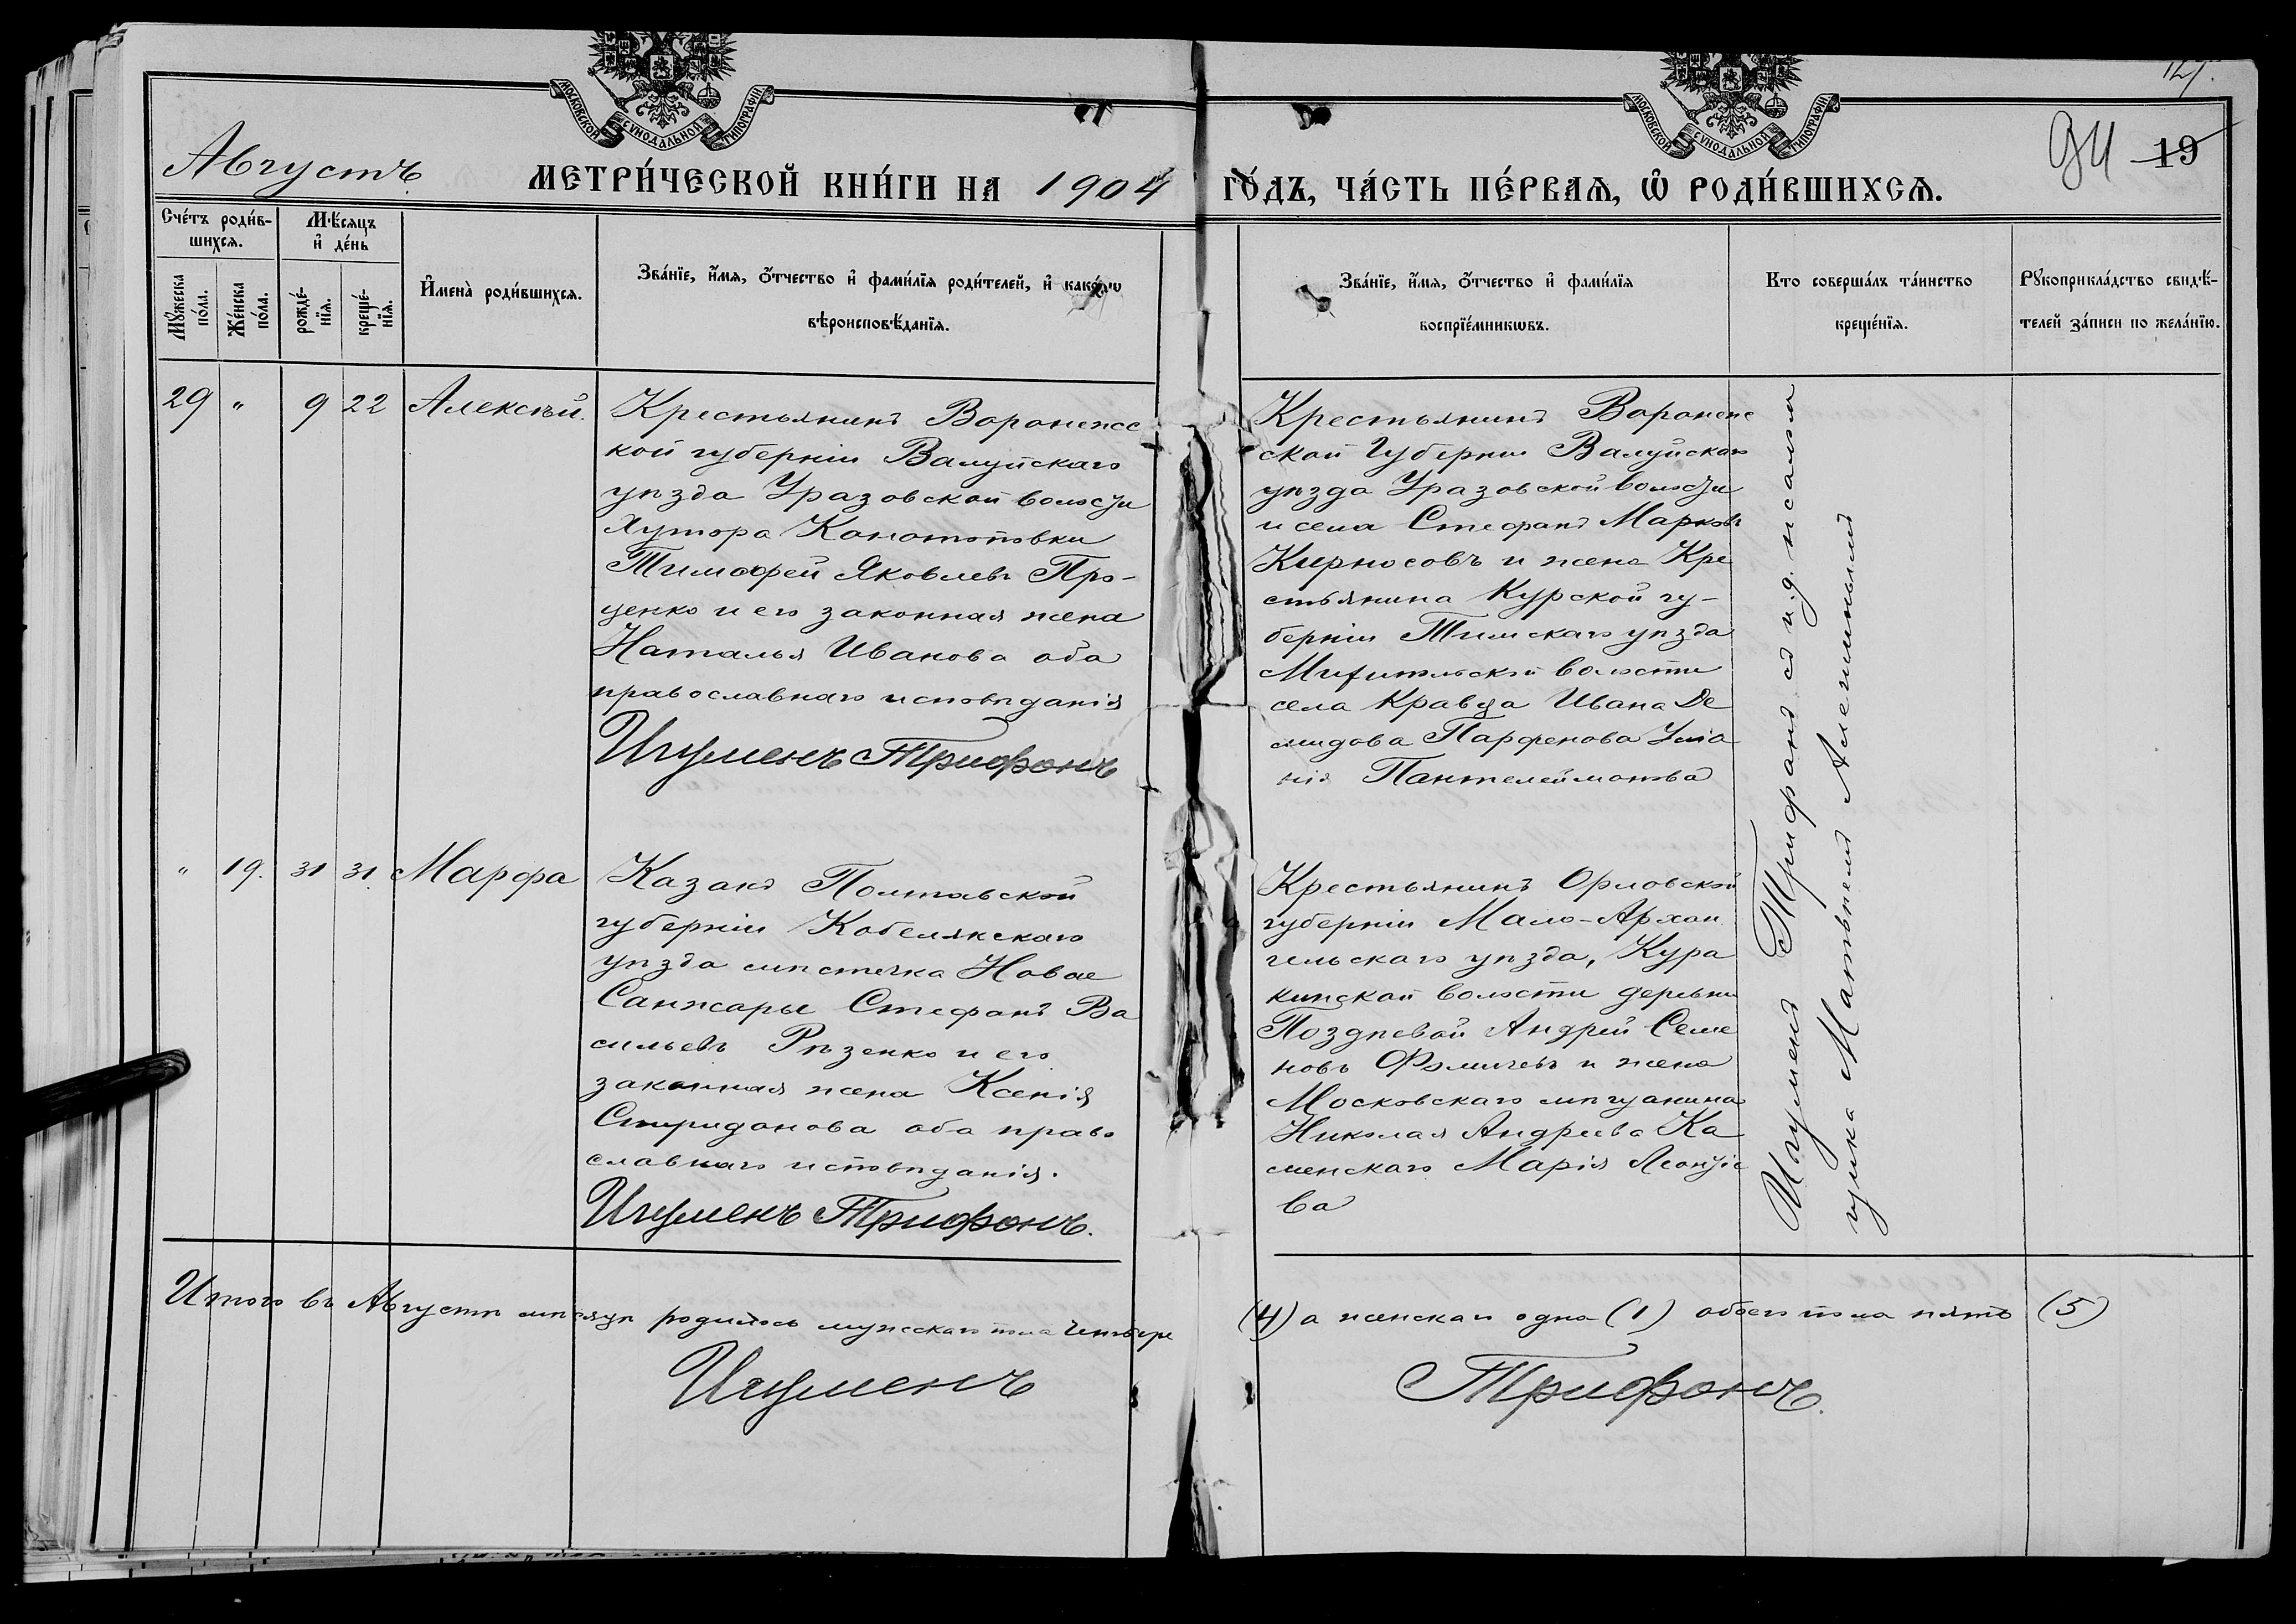 127.
94 19
МОСКОВСКОЙ СѴНОДАЛЬНОЙ ТИПОГРАФІИ
МОСКОВСКОЙ СѴНОДАЛЬНОЙ ТИПОГРАФІИ
Августъ
МЕТРИ́ЧЕСКОЙ КНИ́ГИ НА 1904 ГО́ДЪ, ЧА́СТЬ ПЕ́РВАѦ, Ѽ РОДИ́ВШИХСѦ.
Сче́тъ роди́в-
шихсѧ.
Мꙋ́жеска
по́ла.
Же́нска
по́ла.
Мѣ́сѧцъ
и҆ де́нь
рожде́-
нїѧ.
креще́-
нїѧ.
И҆мена̀ роди́вшихсѧ.
Зва́нїе, и҆́мѧ, ѻ҆́тчество и҆ фами́лїѧ роди́телей, и҆ како́гѡ
вѣроисповѣ́данїѧ.
Зва́нїе, и҆́мѧ, ѻ҆́тчество и҆ фами́лїѧ
воспрїе́мникѡвъ.
Кто соверша́лъ та́инство
креще́нїѧ.
Рꙋкоприкла́дство свидѣ́-
телей за́писи по жела́нїю.
29 " 9 22 Алексѣй.
Крестьянинъ Воронежс
кой губерніи Валуйскаго
уѣзда Уразовской волости
Хутора Конотоповки
Тимофей Яковлевъ Про-
ценко и его законная жена
Наталья Иванова оба
православнаго исповѣданія
Игуменъ Трифонъ
Крестьянинъ Воронеж
ской Губерніи Валуйскаго
уѣзда Уразовской волости
и села Стефанъ Марковъ
Кирносовъ и жена Кре
стьянина Курской гу-
берніи Тимскаго уѣзда
волости
села Кравца Ивана Де
мидова Парфенова Ульа
нія Пантелеймонова
Игуменъ Трифонъ съ и.д. псалом
щика Матвѣемъ
" 19. 31 31. Марфа
Казакъ Полтавской
губерніи Кобелякскаго
уѣзда мѣстечка Новае
Санжары Стефанъ Ва
сильевъ Рѣзенко и его
законная жена Ксенія
Спиридонова оба право
славнаго исповѣданія.
Игуменъ Трифонъ.
Крестьянинъ Орловской
губерніи Мало-Архан
гельскаго уѣзда, Кура
кинской волости деревни
Поздѣевой Андрей Семе
новъ Фомичевъ и жена
Московскаго мѣщанина
Николая Андреева Ка
менскаго Марія Леонтіе
ва
Итого въ Августѣ мѣсяцѣ родилось мужескаго пола четыре (4) а женскаго одна (1) обоего пола пять (5)
Игуменъ Трифонъ.